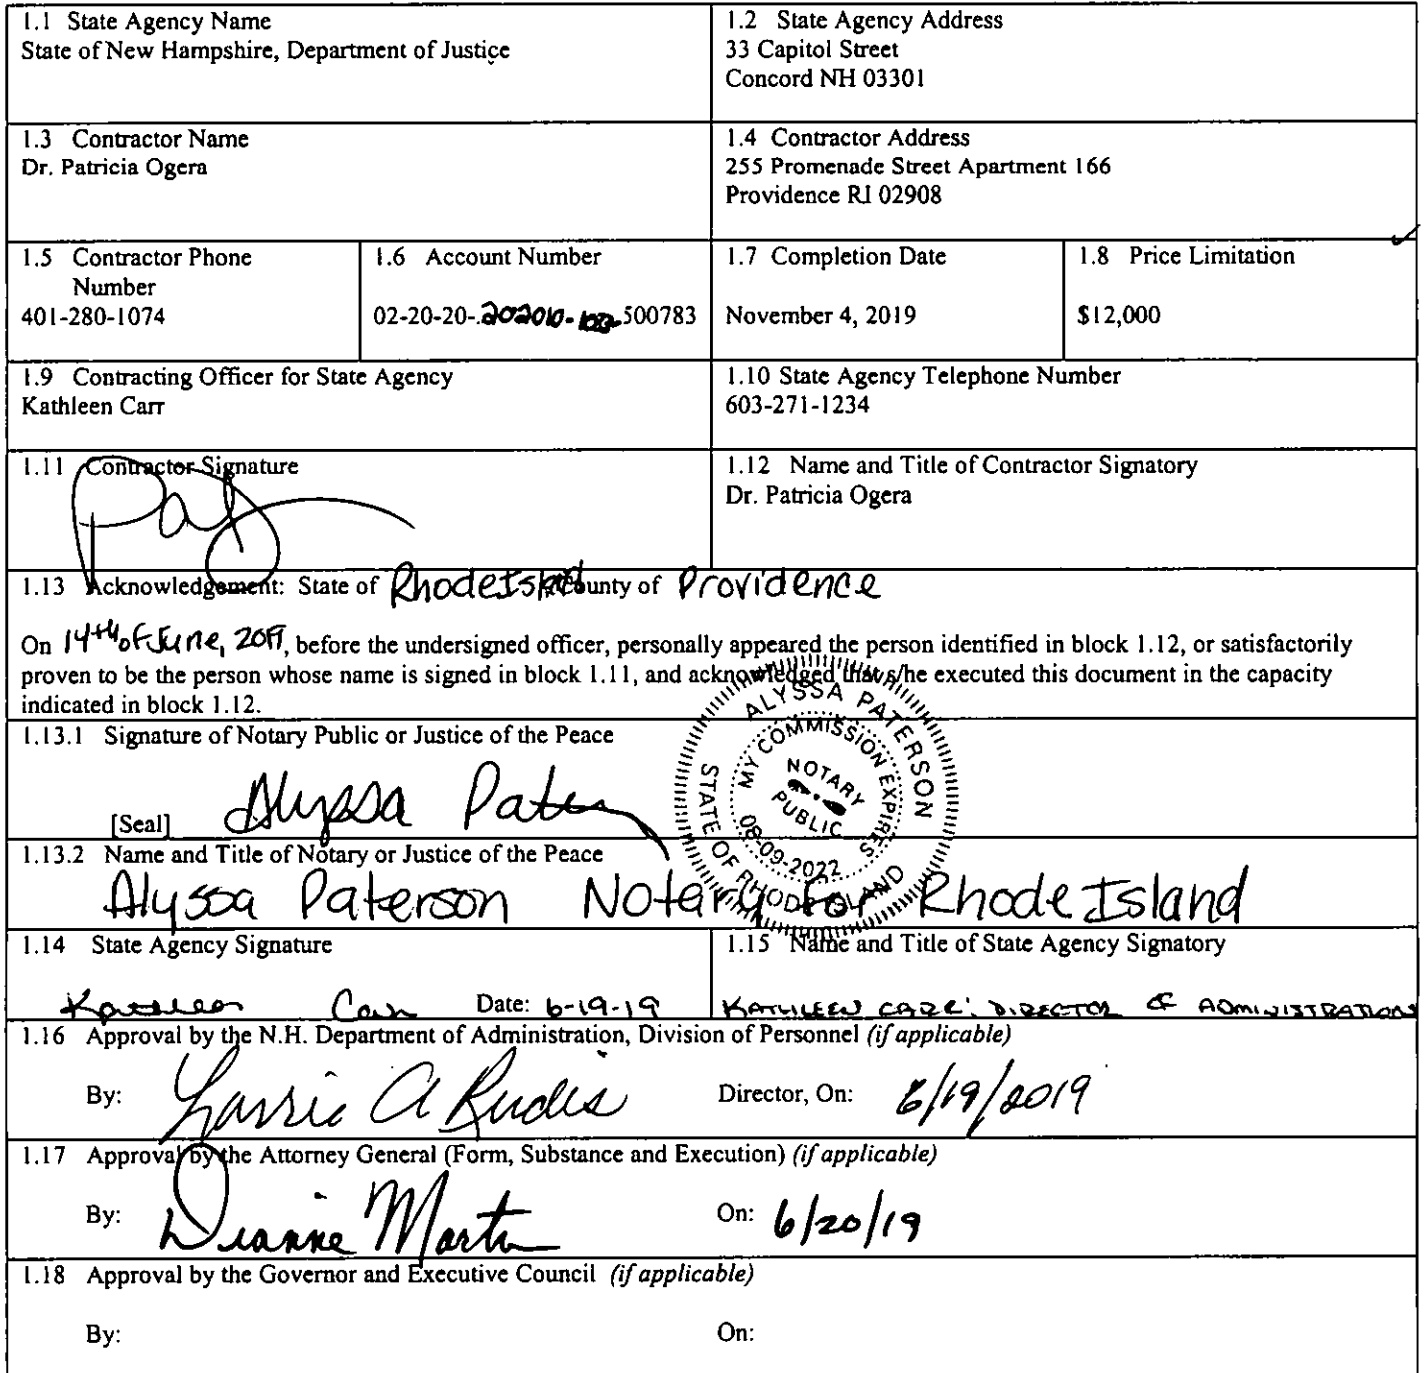 1.1 State Agency Name
State of New Hampshire, Department of Justice
1.2 State Agency Address
33 Capitol Street
Concord NH 03301
1.3 Contractor Name
Dr. Patricia Ogera
1.4 Contractor Address
255 Promenade Street Apartment 166
Providence RI 02908
1.5 Contractor Phone
Number
401-280-1074
1.6 Account Number
02-20-20-.202010-102-500783
1.7 Completion Date
November 4, 2019
1.8 Price Limitation
$12,000
1.9 Contracting Officer for State Agency
Kathleen Carr
1.10 State Agency Telephone Number
603-271-1234
1.11 Contractor Signature
1.12 Name and Title of Contractor Signatory
Dr. Patricia Ogera
1.13 Acknowledgement: State of Rhode Island County of Providence
On 14th of June, 2019, before the undersigned officer, personally appeared the person identified in block 1.12, or satisfactorily
proven to be the person whose name is signed in block 1.11, and acknowledged that s/he executed this document in the capacity
indicated in block 1.12.
1.13.1 Signature of Notary Public or Justice of the Peace
[Seal] Alyssa Pater
ALYSSA PATERSON
STATE OF RHODE ISLAND
MY COMMISSION EXPIRES
08-09-2022
NOTARY
PUBLIC
1.13.2 Name and Title of Notary or Justice of the Peace
Alyssa Paterson Notary for Rhode Island
1.14 State Agency Signature
Kathleen Carr Date: 6-19-19
1.15 Name and Title of State Agency Signatory
KATHLEEN CARR: DIRECTOR OF ADMINISTRATION
1.16 Approval by the N.H. Department of Administration, Division of Personnel (if applicable)
By: Lorrie A Rudis Director, On: 6/19/2019
1.17 Approval by the Attorney General (Form, Substance and Execution) (if applicable)
By: Dianne Martin On: 6/20/19
1.18 Approval by the Governor and Executive Council (if applicable)
By: On: